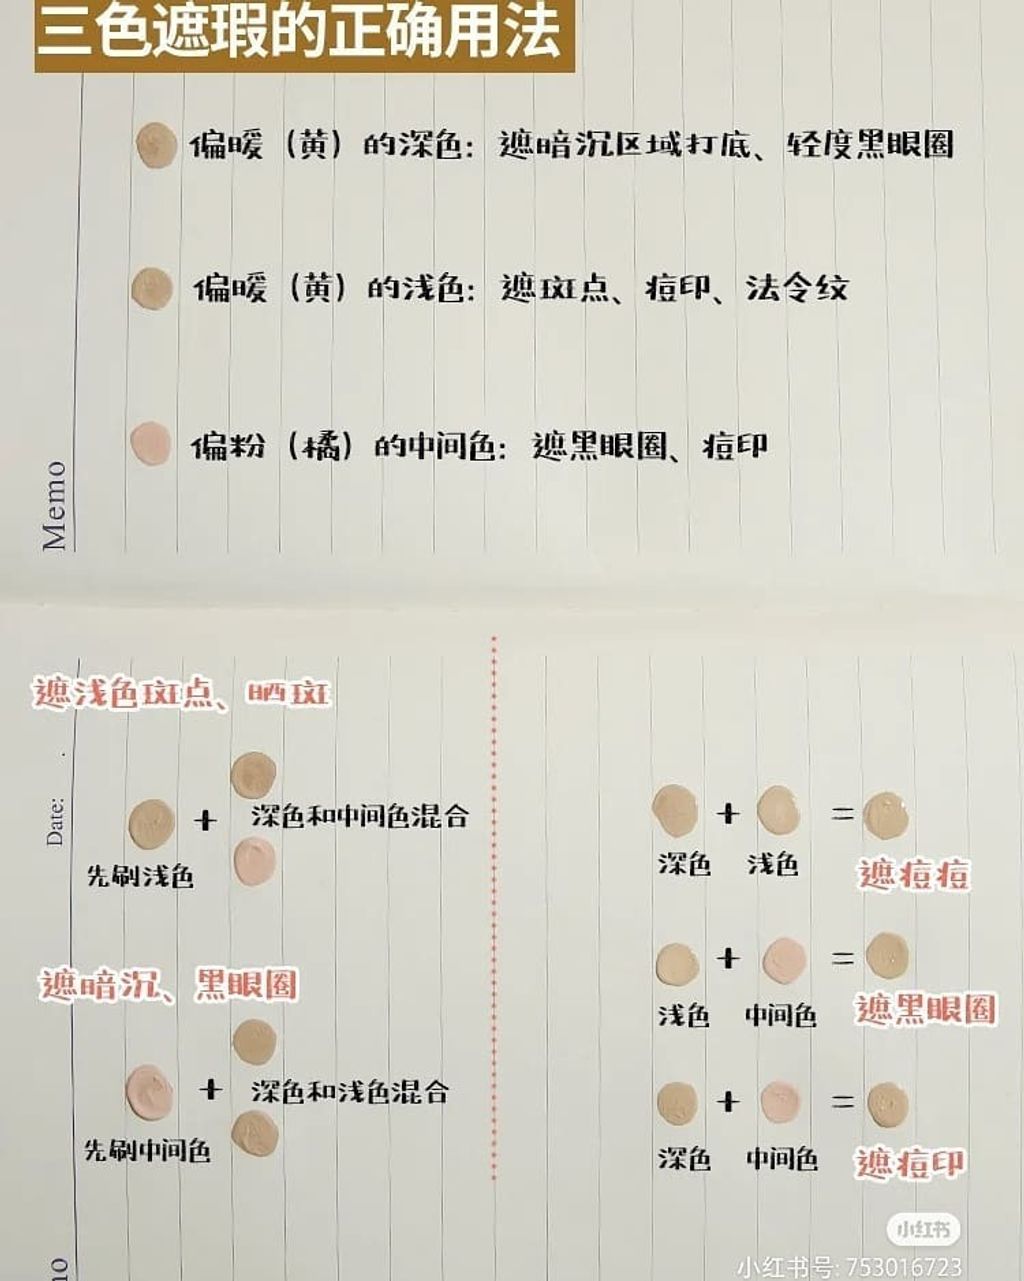 三色遮瑕的正确用法
偏暖（黄）的深色：遮暗沉区域打底、轻度黑眼圈
偏暖（黄）的浅色：遮斑点、痘印、法令纹
偏粉（橘）的中间色：遮黑眼圈、痘印
Memo
遮浅色斑点、晒斑
Date:
深色和中间色混合
+
先刷浅色
遮暗沉、黑眼圈
+
深色和浅色混合
先刷中间色
+ =
深色 浅色
遮痘痘
+ =
浅色 中间色
遮黑眼圈
+ =
深色 中间色
遮痘印
小红书
小红书号: 753016723